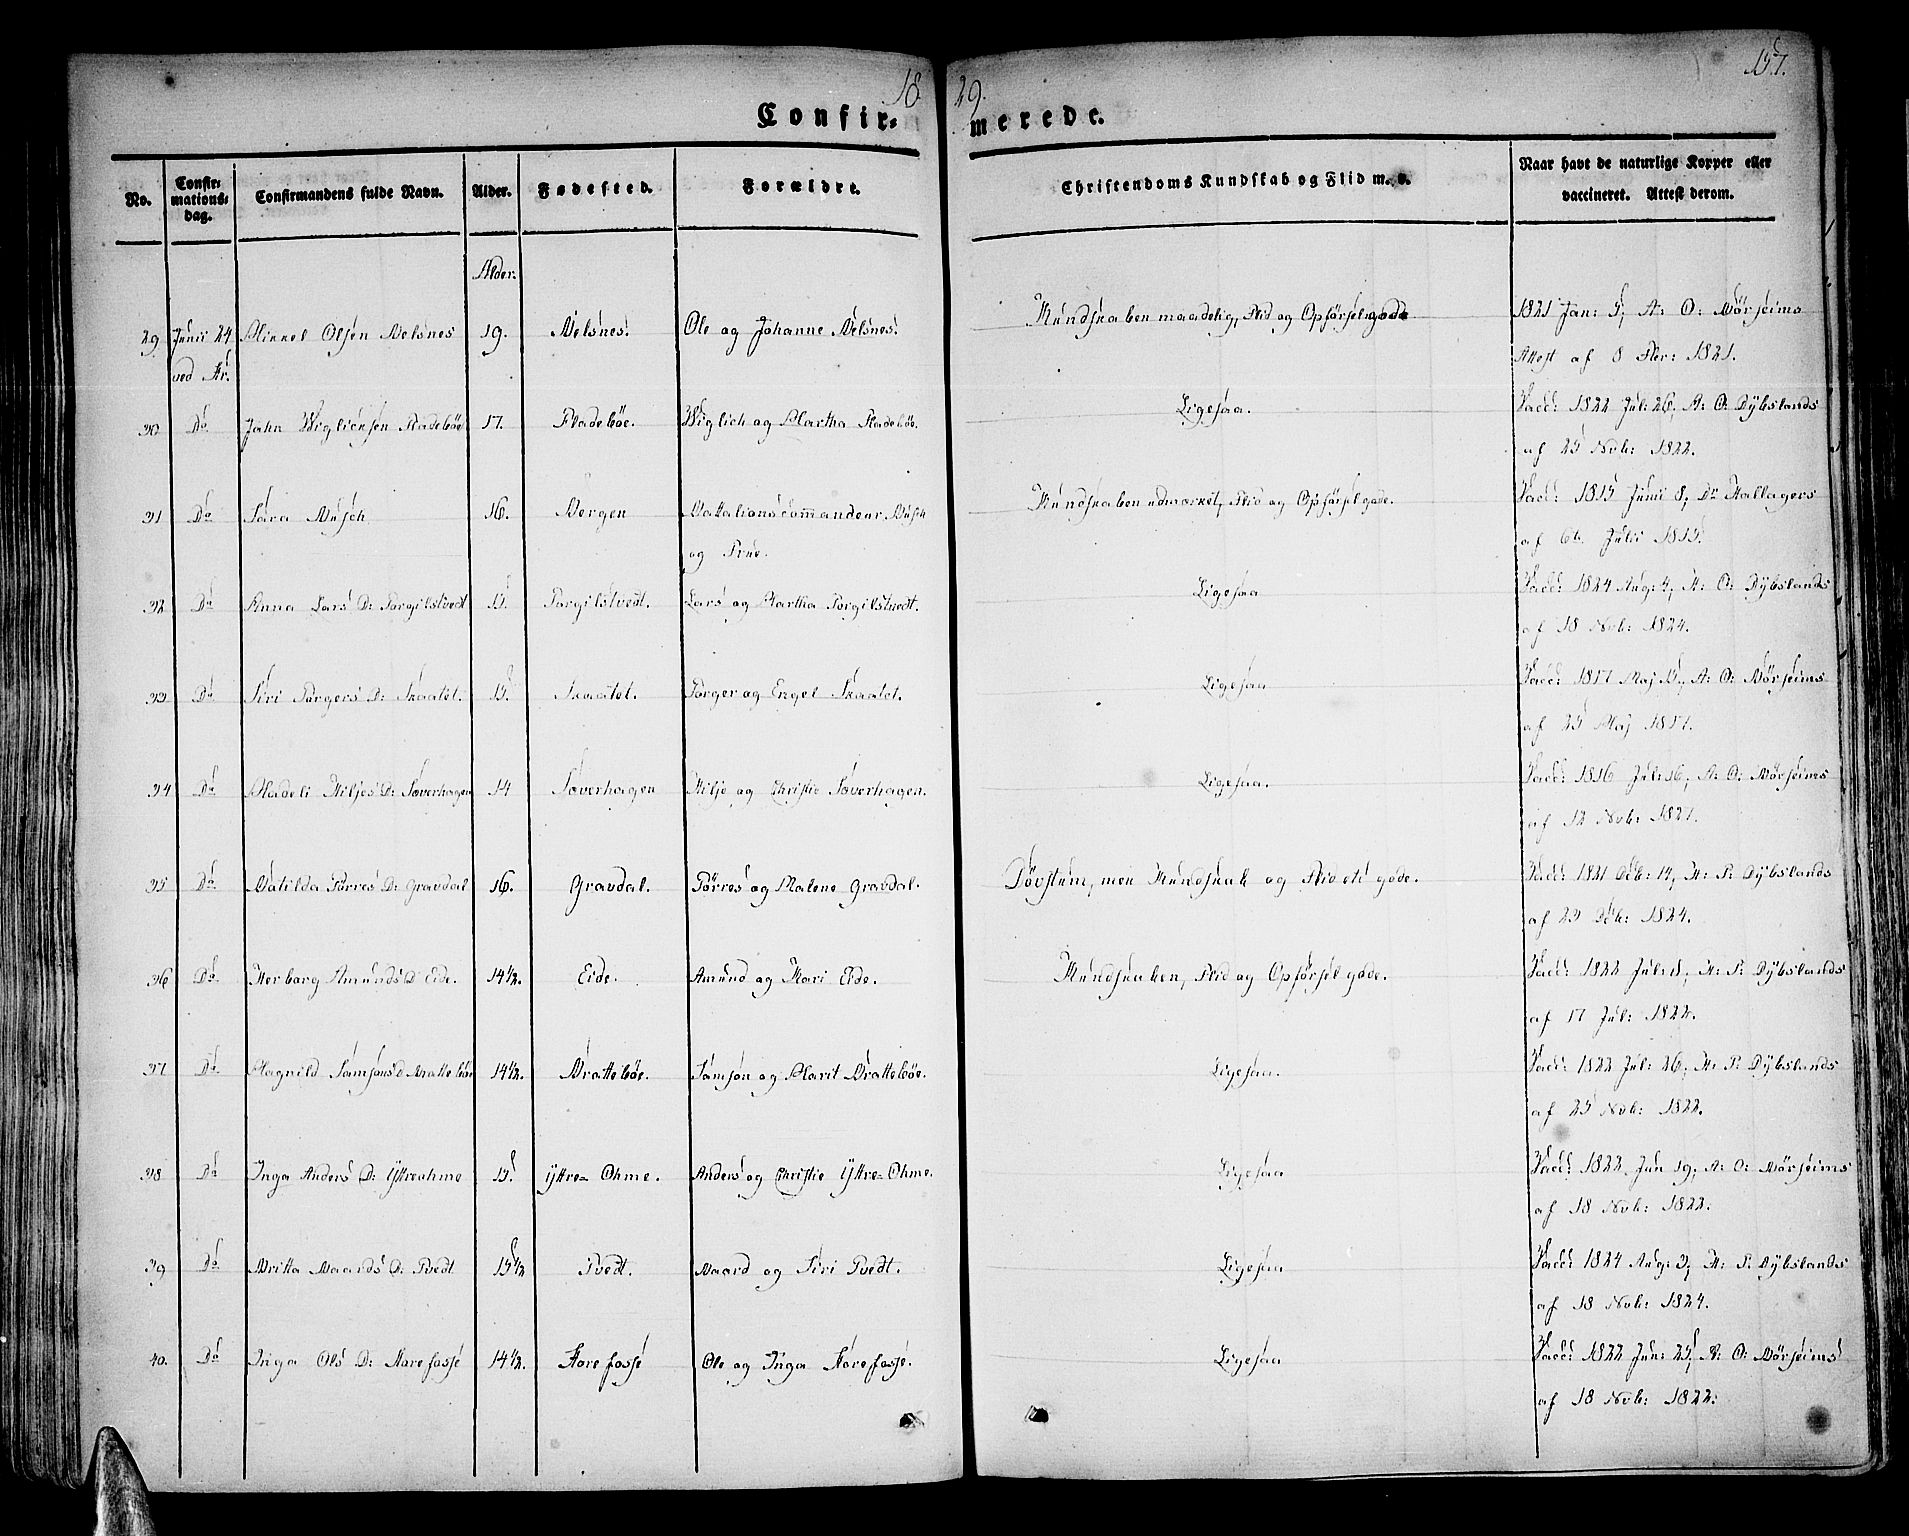 18 29. 157.
Confir= merede.
No. Confir=mations=dag. Confirmandens fulde Navn. Alder. Fødested. Forældre. Christendoms Kundskab og Flid m. v. Naar havt de naturlige Kopper eller vaccineret. Attest derom.
Alder
29 Junii 24 Mikkel Olsen Nelsnes 19. Nelsnes. Ole og Johanne Nelsnes. Kundskaben maadelig, Flid og Opførsel gode 1821 Jan: 5, A: O: Mørseims
ved Kr. Attest af 8 Fbr: 1821.
30 Do John Wigliksen Fladebøe 17. Fladebøe. Wiglich og Martha Fladebøe. Ligesaa. Vacc: 1822 Jul: 26, A: O: Dybslands
af 25 Nvb: 1822.
31 Do Sara Busch 16. Bergen Battalionscommandeur Busch Kundskaben udmærket, Flid og Opførsel gode. Vacc: 1815 Junii 8, Dr Hallagers
og Frue. af 6te Julii 1815.
32 Do Anna Lars D: Torgilstvedt 15. Torgilstvedt. Lars og Martha Torgilstvedt. Ligesaa Vacc: 1824 Aug: 4, A: O: Dybslands
af 18 Nvb: 1824.
33 Do Siri Torgers D: Skaatet. 15. Skaatet. Torger og Engel Skaatet. Ligesaa Vacc: 1817 Maj 15, A: O: Mørseims
af 25 Maj 1817.
34 Do Madeli Kiljes D: Sæverhagen 14 Sæverhagen Kilje og Christie Sæverhagen. Ligesaa. Vacc: 1816 Jul: 16, A: O: Mørseims
af 12 Nvb: 1827.
35 Do Matilda Tørres D: Gravdal 16. Gravdal. Tørres og Malene Gravdal. Døvstum, men Kundskab og Flid etc gode. Vacc: 1821 Dcb: 14, K: P: Dybslands
af 23 Dcb: 1824.
36 Do Herborg Amunds D Eide. 14½. Eide. Amund og Kari Eide. Kundskaben, Flid og Opførsel gode. Vacc: 1822 Jul: 8, K: P: Dybslands
af 17 Jul: 1822.
37 Do Magnild Samsons D. Brattebøe 14½. Brattebøe. Samson og Marit Brattebøe. Ligesaa. Vacc: 1822 Jul: 26, K: P: Dybslands
af 25 Nvb: 1822.
38 Do Inga Anders D: Yttreohme 15. Yttre=Ohme. Anders og Christie Yttre=Ohme. Ligesaa Vacc: 1822 Jun 19, A: O: Mørseims
af 18 Nvb: 1822.
39 Do Britta Baards D: Tvedt 15½ Tvedt. Baard og Siri Tvedt. Ligesaa Vacc: 1824 Aug: 3, K: P: Dybslands
af 18 Nvb: 1824.
40. Do Inga Ols D: Fosse 14½. Fosse Ole og Inga Fosse. Ligesaa Vacc: 1822 Jun: 25, A: O: Mørseims
af 18 Nvb: 1822: